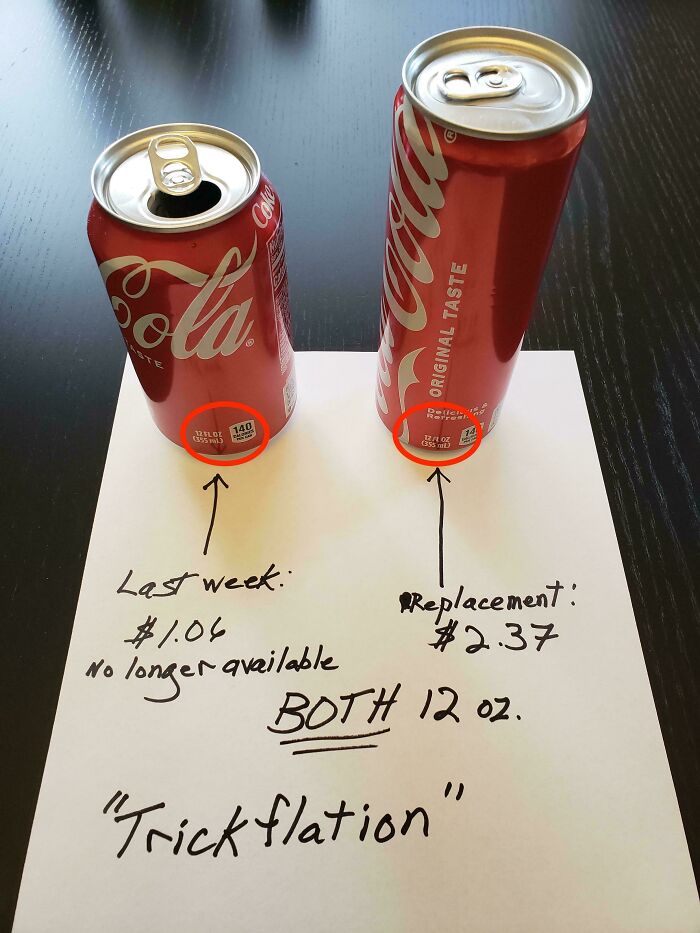 Cola
Coke
®
ASTE
12 FL OZ
(355 mL)
140
CALORIES
PER CAN
Coca-Cola
®
ORIGINAL TASTE
Delicious &
Refreshing
12 FL OZ
(355 mL)
14
Last week:
$1.06
No longer available
Replacement:
$2.37
BOTH 12 oz.
"Trickflation"